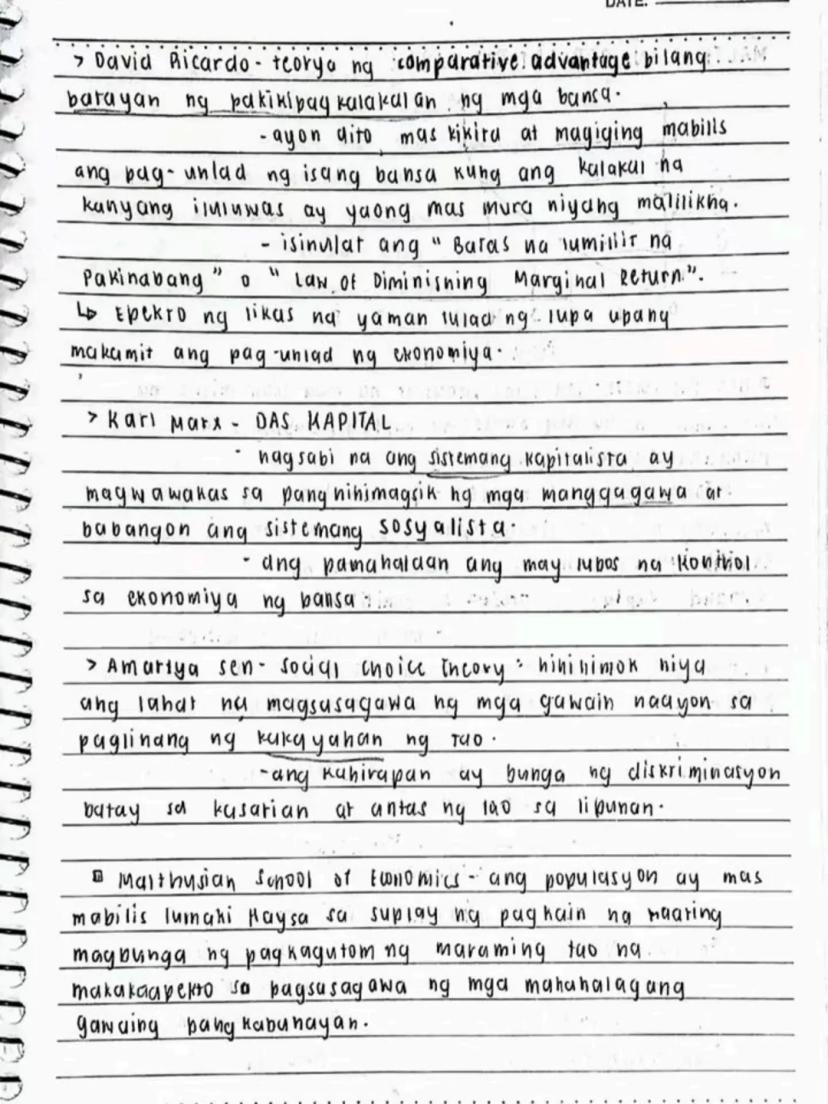 DATE:
> David Ricardo - teorya ng comparative advantage bilang
batayan ng pakikipagkalakalan ng mga bansa.
- ayon dito mas kikita at magiging mabilis
ang pag-unlad ng isang bansa kung ang kalakal na
kanyang iluluwas ay yaong mas mura niyang malilikha.
- isinulat ang "Batas na lumiliit na
Pakinabang" o "Law of Diminishing Marginal Return".
↳ Epekto ng likas na yaman tulad ng lupa upang
makamit ang pag-unlad ng ekonomiya.
> Karl Marx - DAS KAPITAL
- nagsabi na ang sistemang kapitalista ay
magwawakas sa panghihimagsik ng mga manggagawa at
babangon ang sistemang sosyalista.
- ang pamahalaan ang may lubos na kontrol
sa ekonomiya ng bansa
> Amartya sen - social choice theory : hinihimok niya
ang lahat na magsasagawa ng mga gawain naayon sa
paglinang ng kakayahan ng tao.
- ang kahirapan ay bunga ng diskriminasyon
batay sa kasarian at antas ng tao sa lipunan.
Malthusian School of Economics - ang populasyon ay mas
mabilis lumaki kaysa sa suplay ng pagkain na maaring
magbunga ng pagkagutom ng maraming tao na
makakaapekto sa pagsasagawa ng mga mahahalagang
gawaing pangkabuhayan.